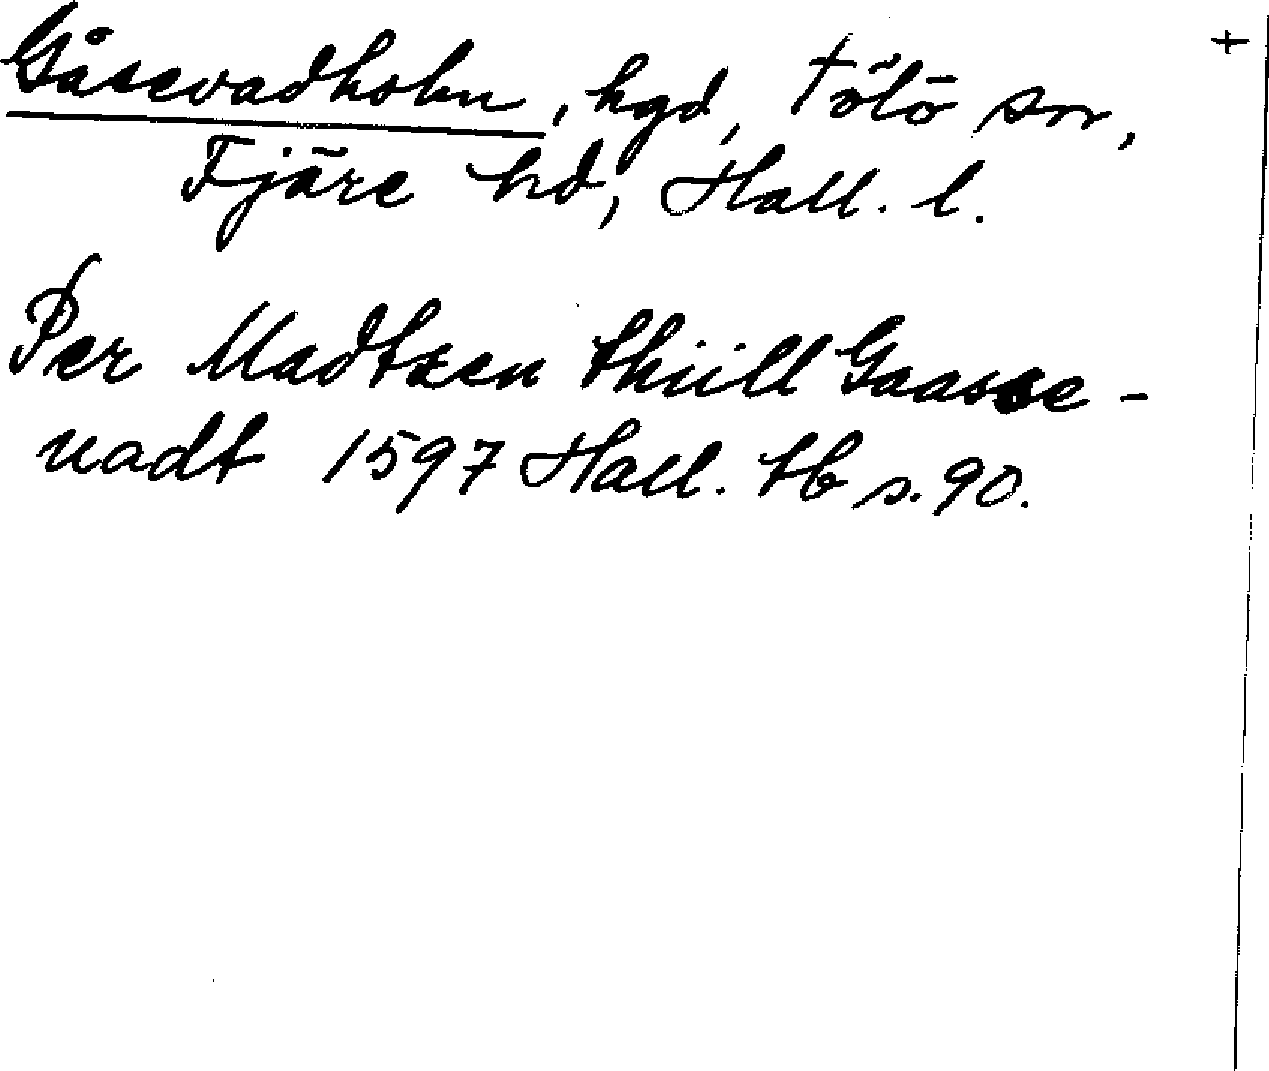 Gåsevadholm, hgd, Tölö sn, +
Fjäre hd, Hall. l.
Per Madtzen thiill Gaasse-
uadt 1597 Hall. tb s. 90.